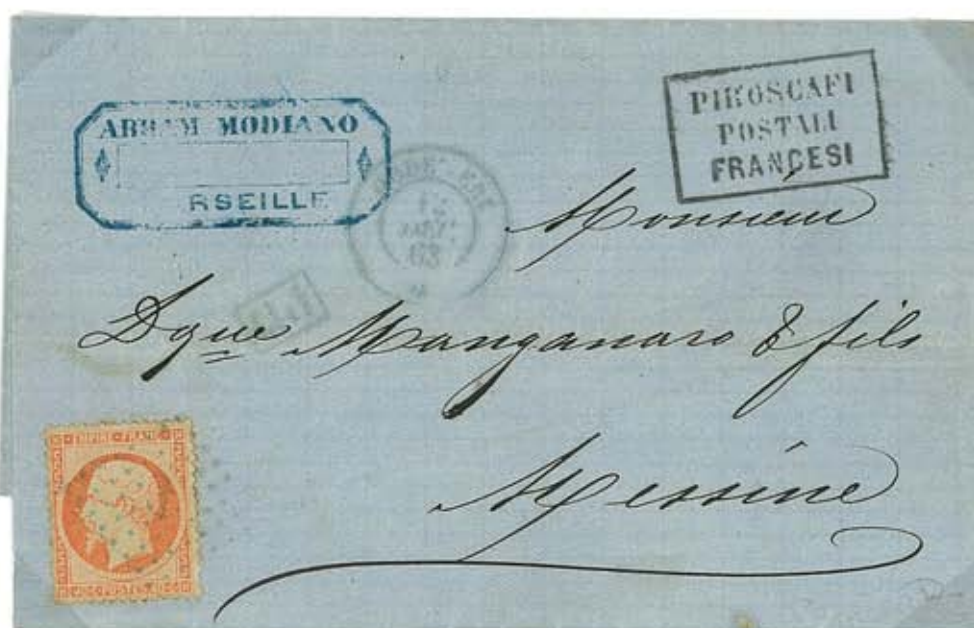 ABRAM MODIANO
RSEILLE
PIROSCAFI
POSTALI
FRANCESI
63
Monsieur
Dque Manganaro & fils
Messine
EMPIRE-FRANC
40 C POSTES 40 C